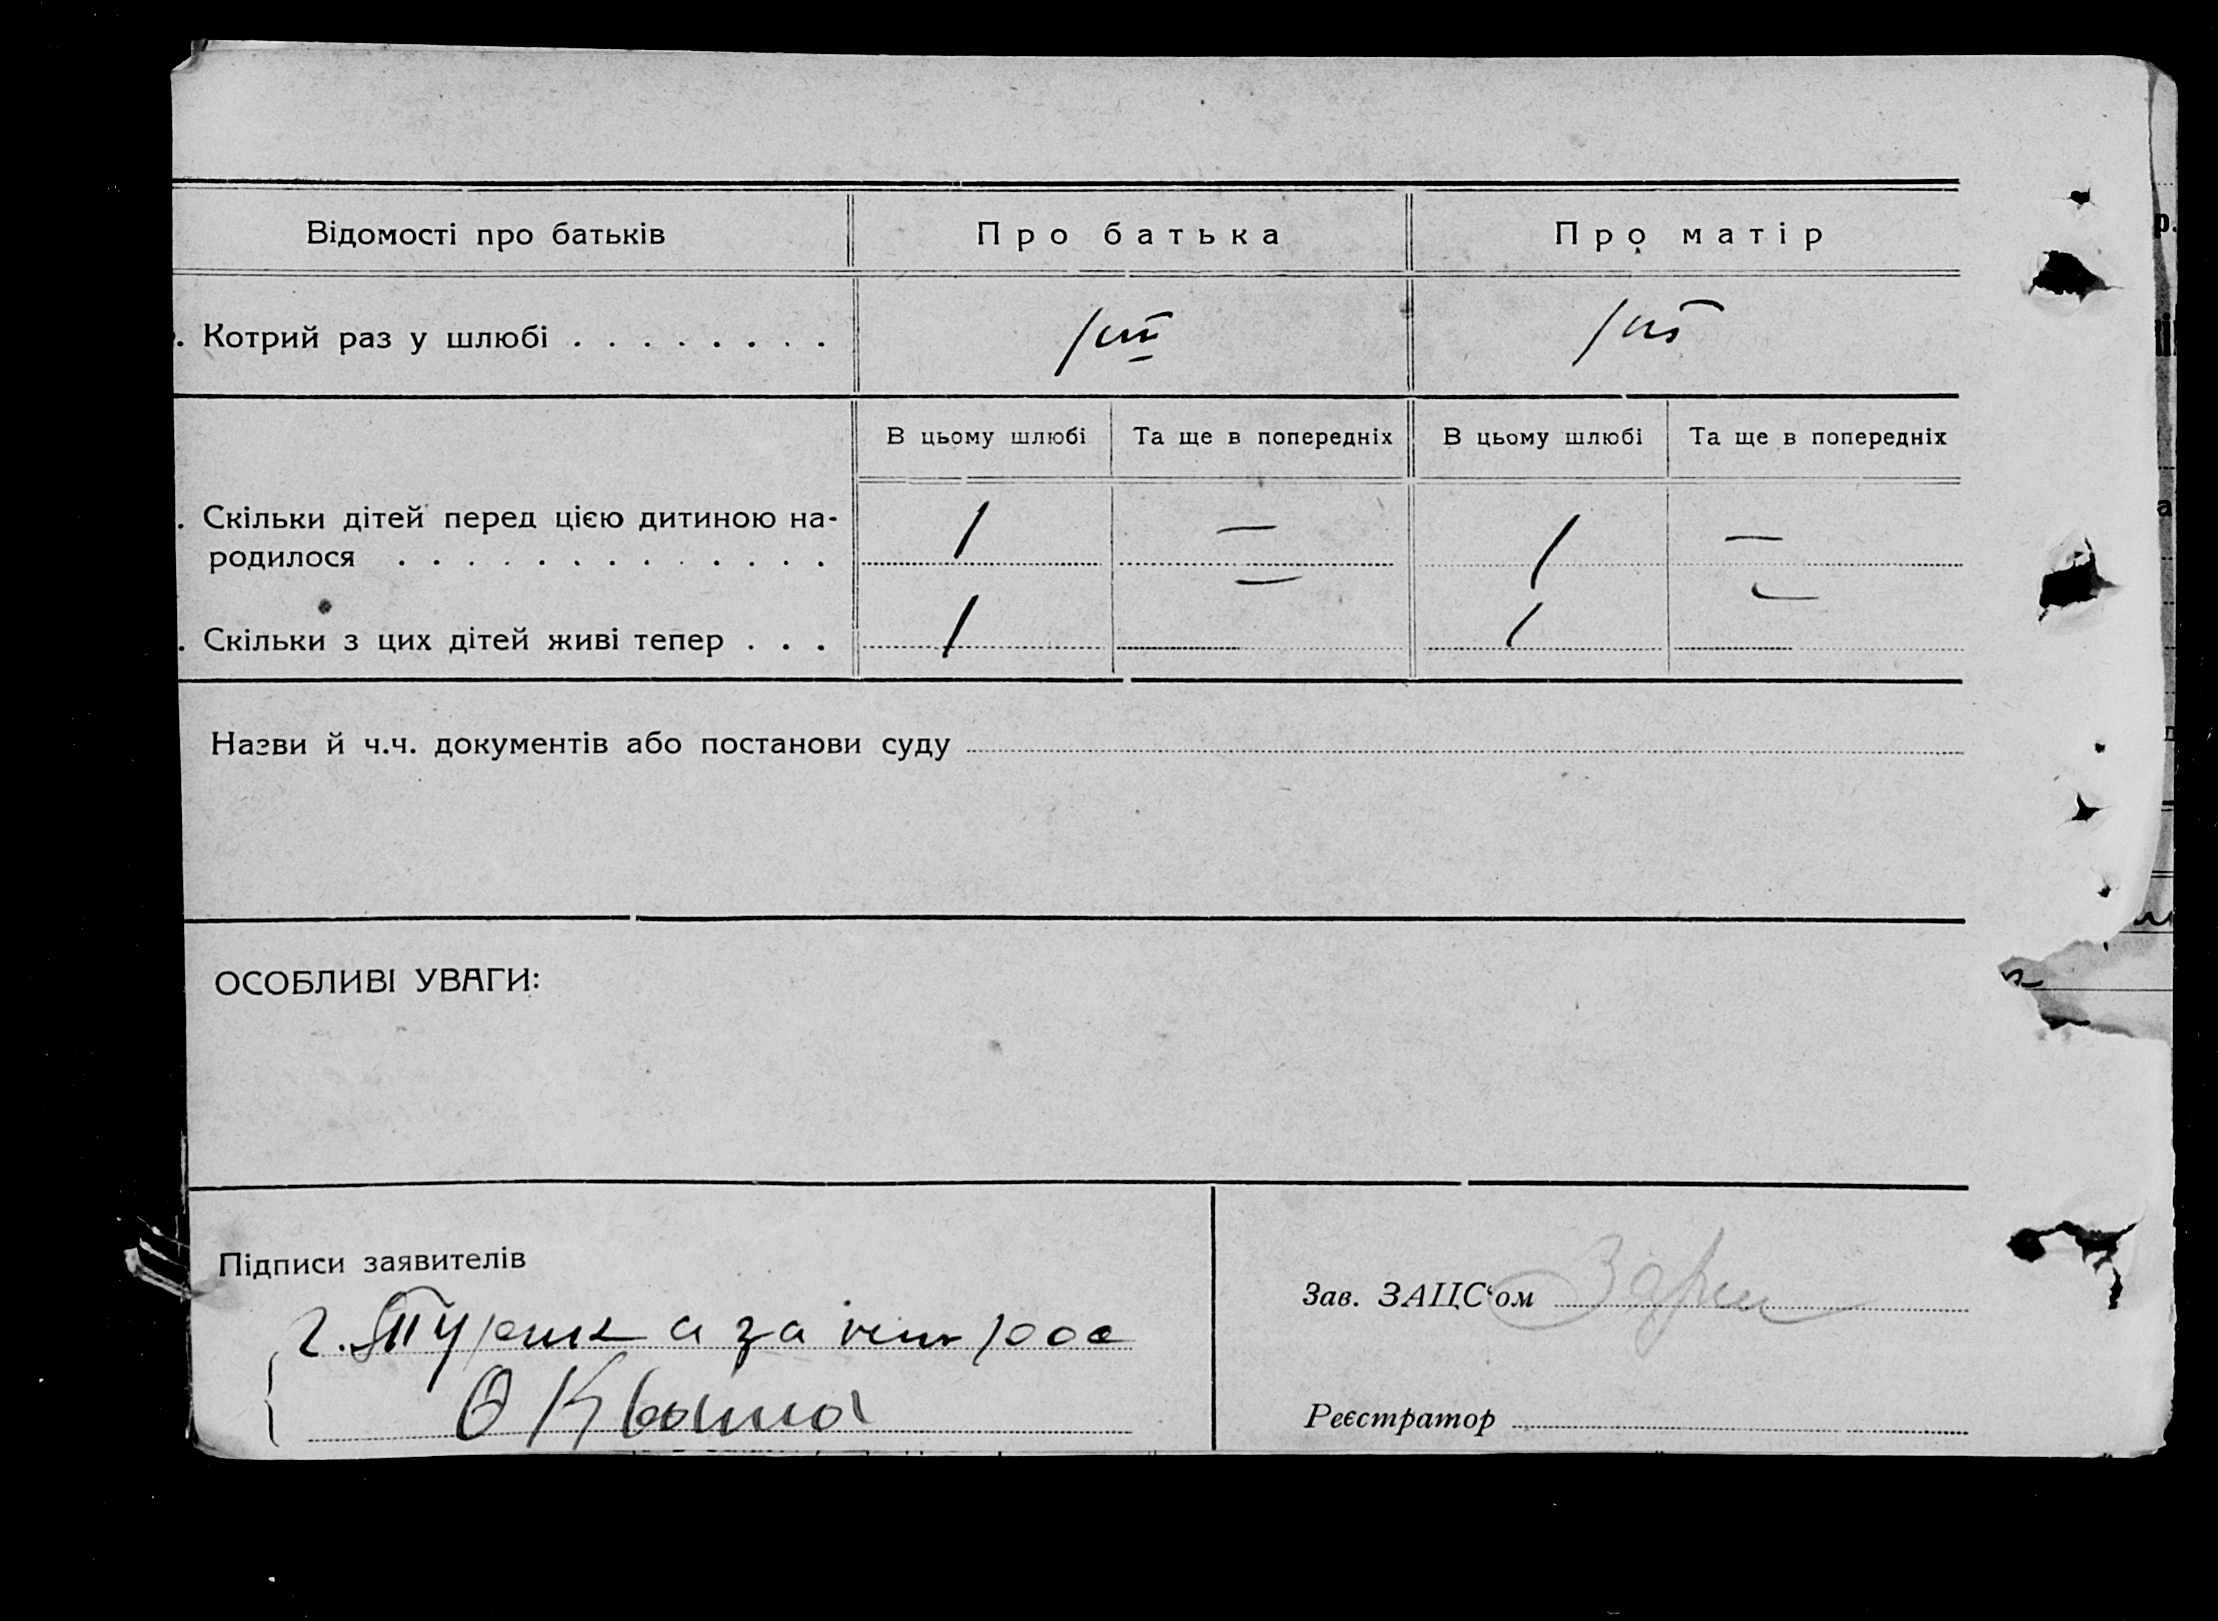 Відомості про батьків
Про батька
Про матір
. Котрий раз у шлюбі . . . . . . . .
1ий
1ий
В цьому шлюбі
Та ще в попередніх
В цьому шлюбі
Та ще в попередніх
. Скільки дітей перед цією дитиною на-
родилося . . . . . . . . . . . . .
1 — 1 —
. Скільки з цих дітей живі тепер . . .
1 — 1 —
Назви й ч.ч. документів або постанови суду
ОСОБЛИВІ УВАГИ:
Підписи заявителів
за
Зав. ЗАЦС‘ом
Реєстратор